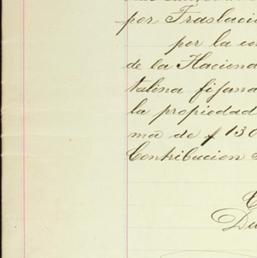 por Traslacio
por la co
de la Hacien
talina fijana
la propiedad
ma de $ 130
Contribucion